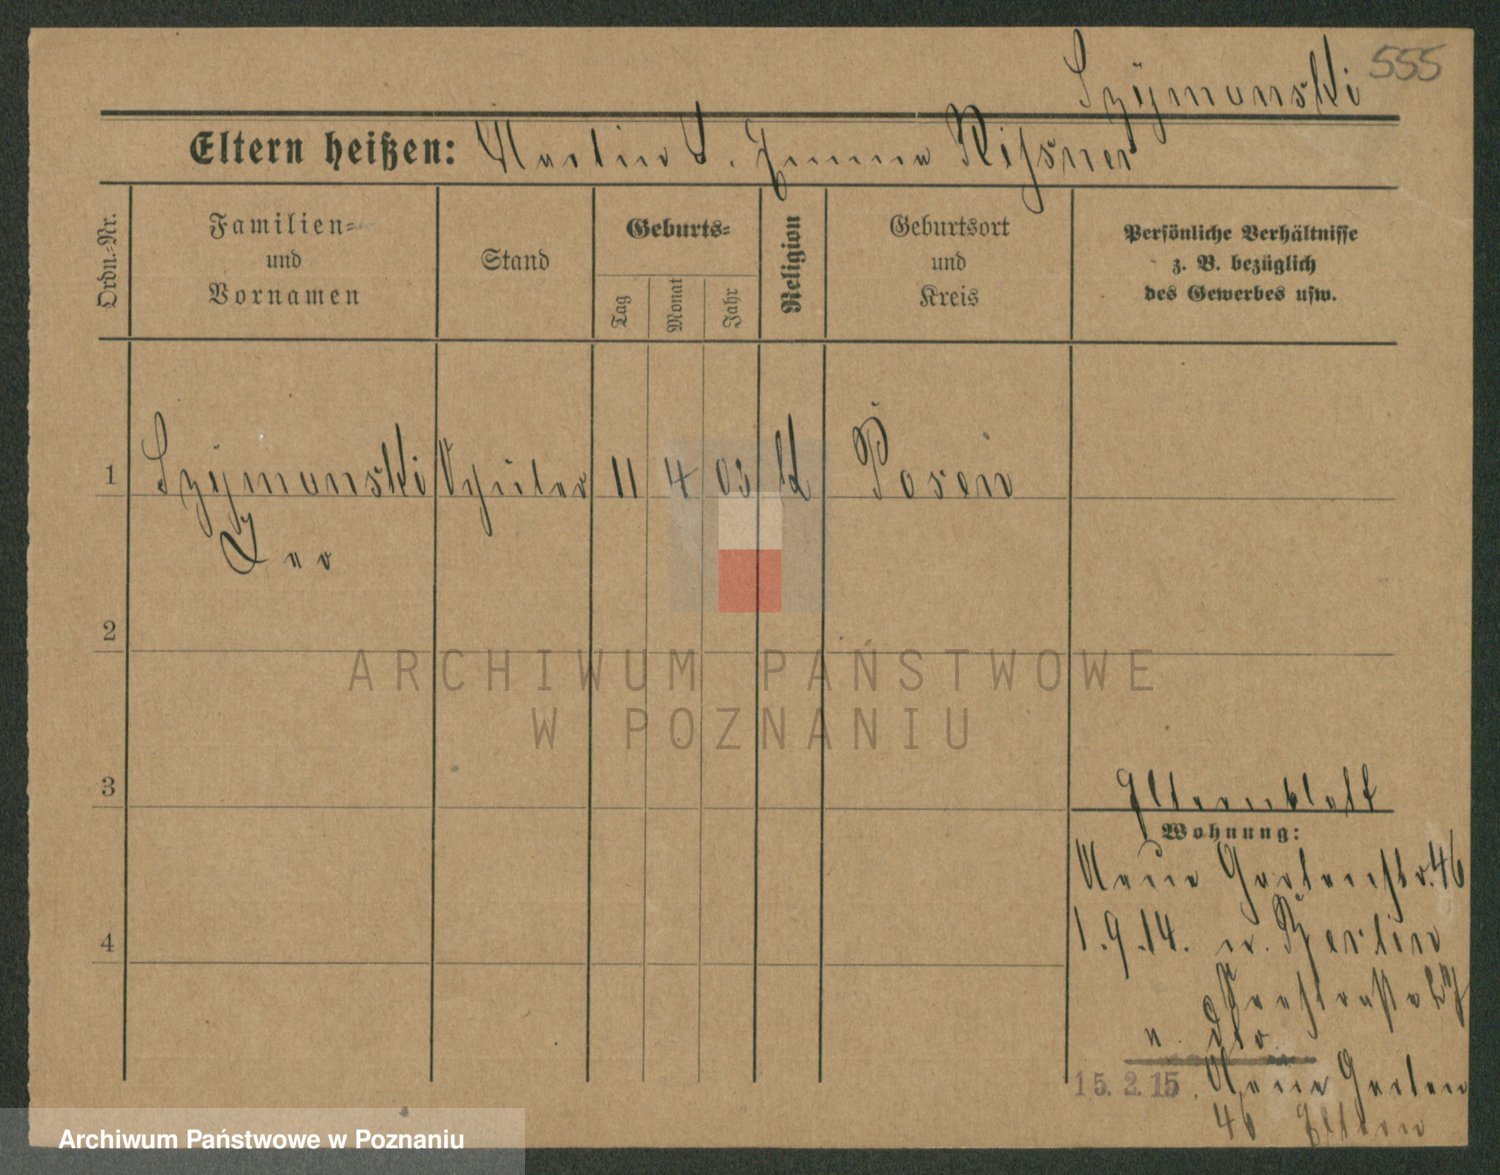 555
Szymanski
Eltern heißen: Martin S. Emma Rißner
Ordn.-Nr.
Familien- und Vornamen
Stand
Geburts-
Tag
Monat
Jahr
Religion
Geburtsort und Kreis
Persönliche Verhältnisse z. B. bezüglich des Gewerbes usw.
1 Szymanski Schüler 11 4 03 k Posen
Leo
2
3
4
Elternblatt
Wohnung:
Neue Gartenstr. 46
1.9.14. n. Berlin
15.2.15. Neue Garten
46 Eltern
ARCHIWUM PAŃSTWOWE
W POZNANIU
Archiwum Państwowe w Poznaniu